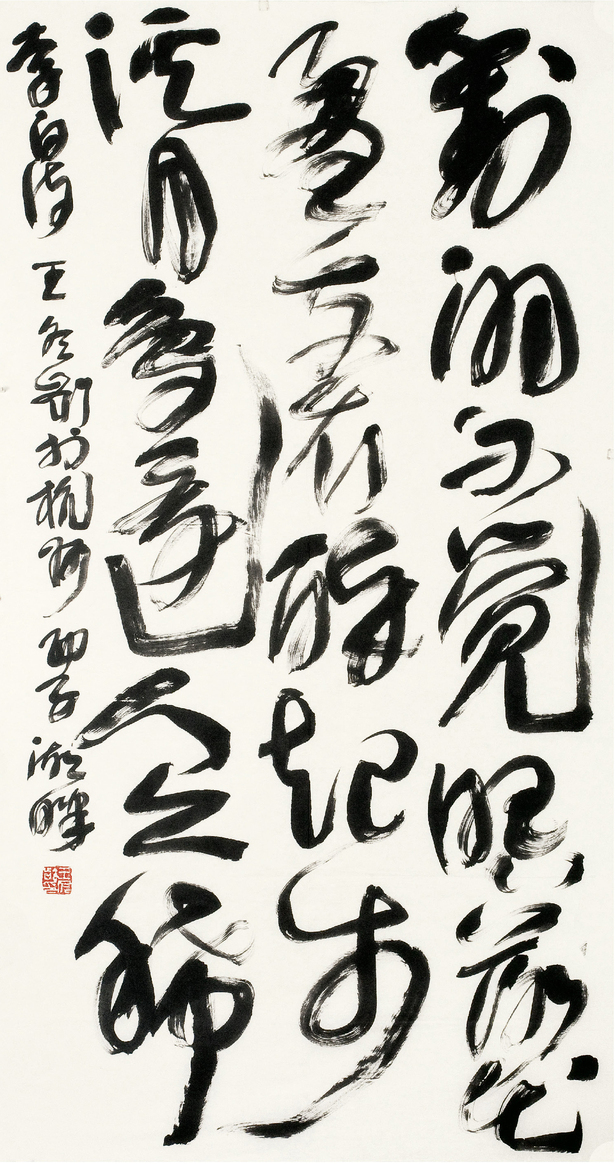 對酒不覺暝落花
盈我衣醉起步
溪月鳥還人亦稀
李白詩 王冬齡於杭州西子湖畔